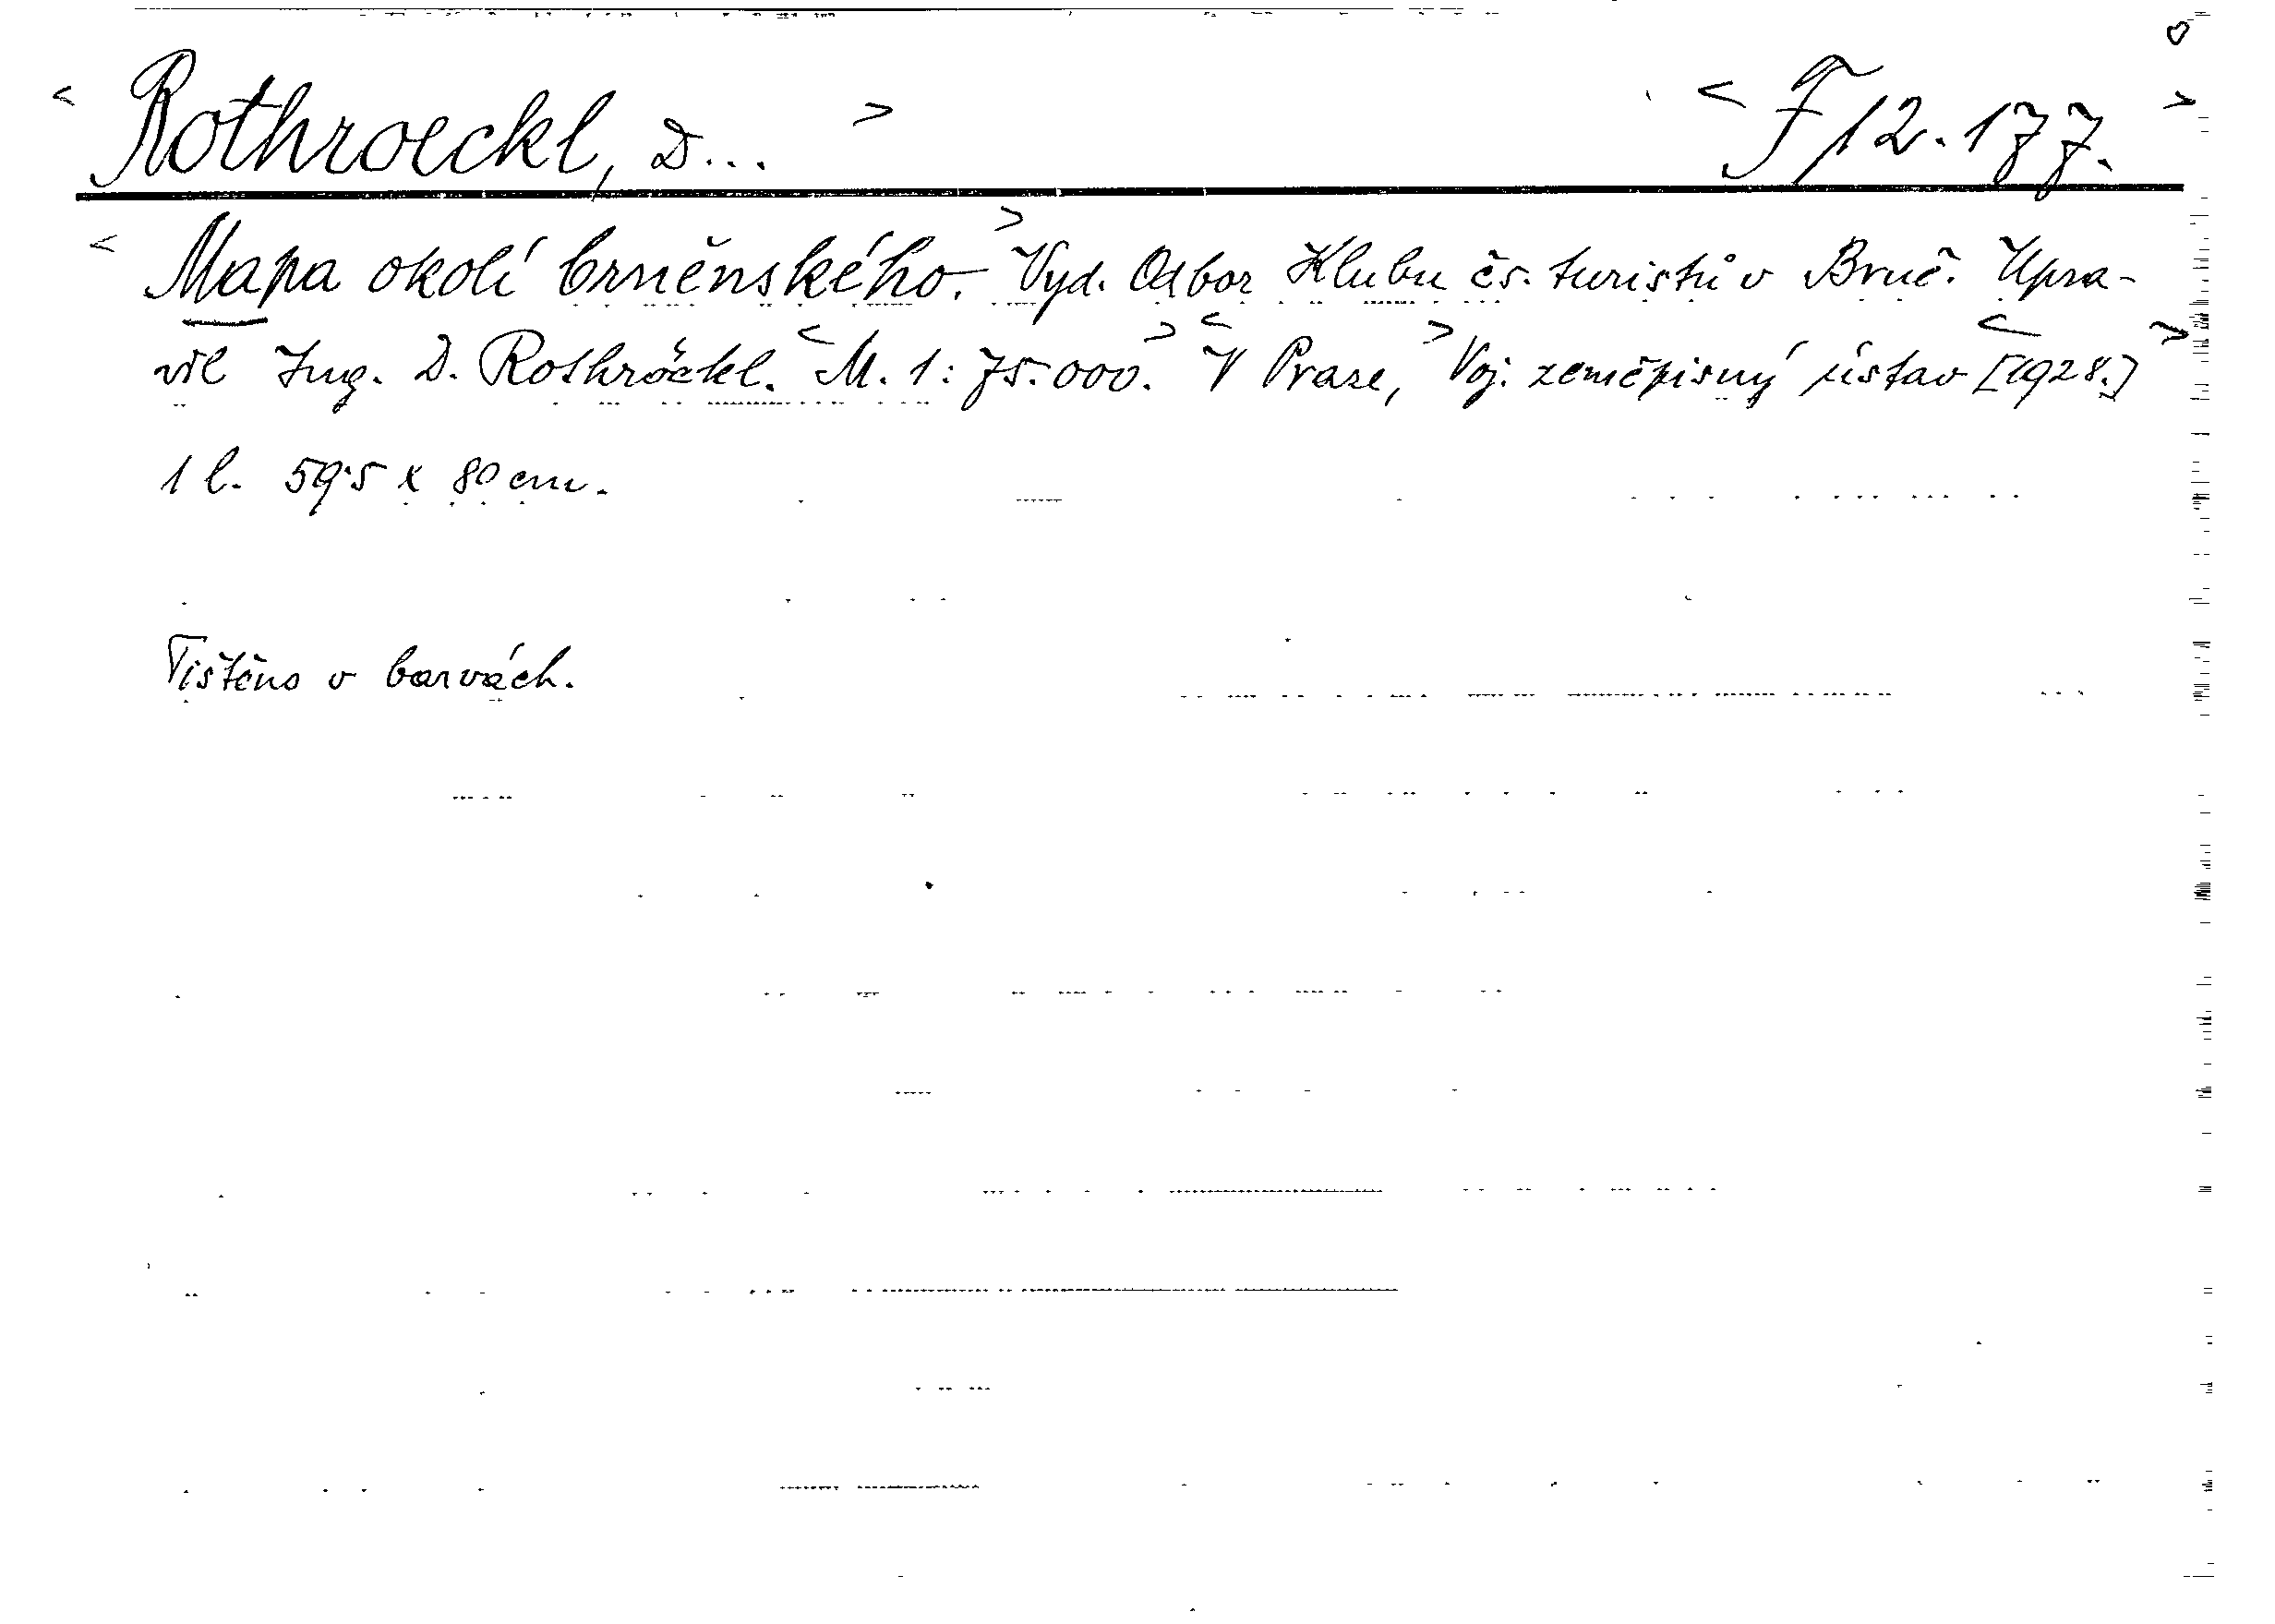 < Rothroeckl, D... > < F 12.177. >
< Mapa okolí brněnského. > Vyd. Odbor Klubu čs. turistů v Brně. Upra-
vil Ing. D. Rothröckl. < M. 1:75.000. > < V Praze, > Voj. zeměpisný ústav < [1928.] >
1 l. 59·5 x 80 cm.
Tištěno v barvách.